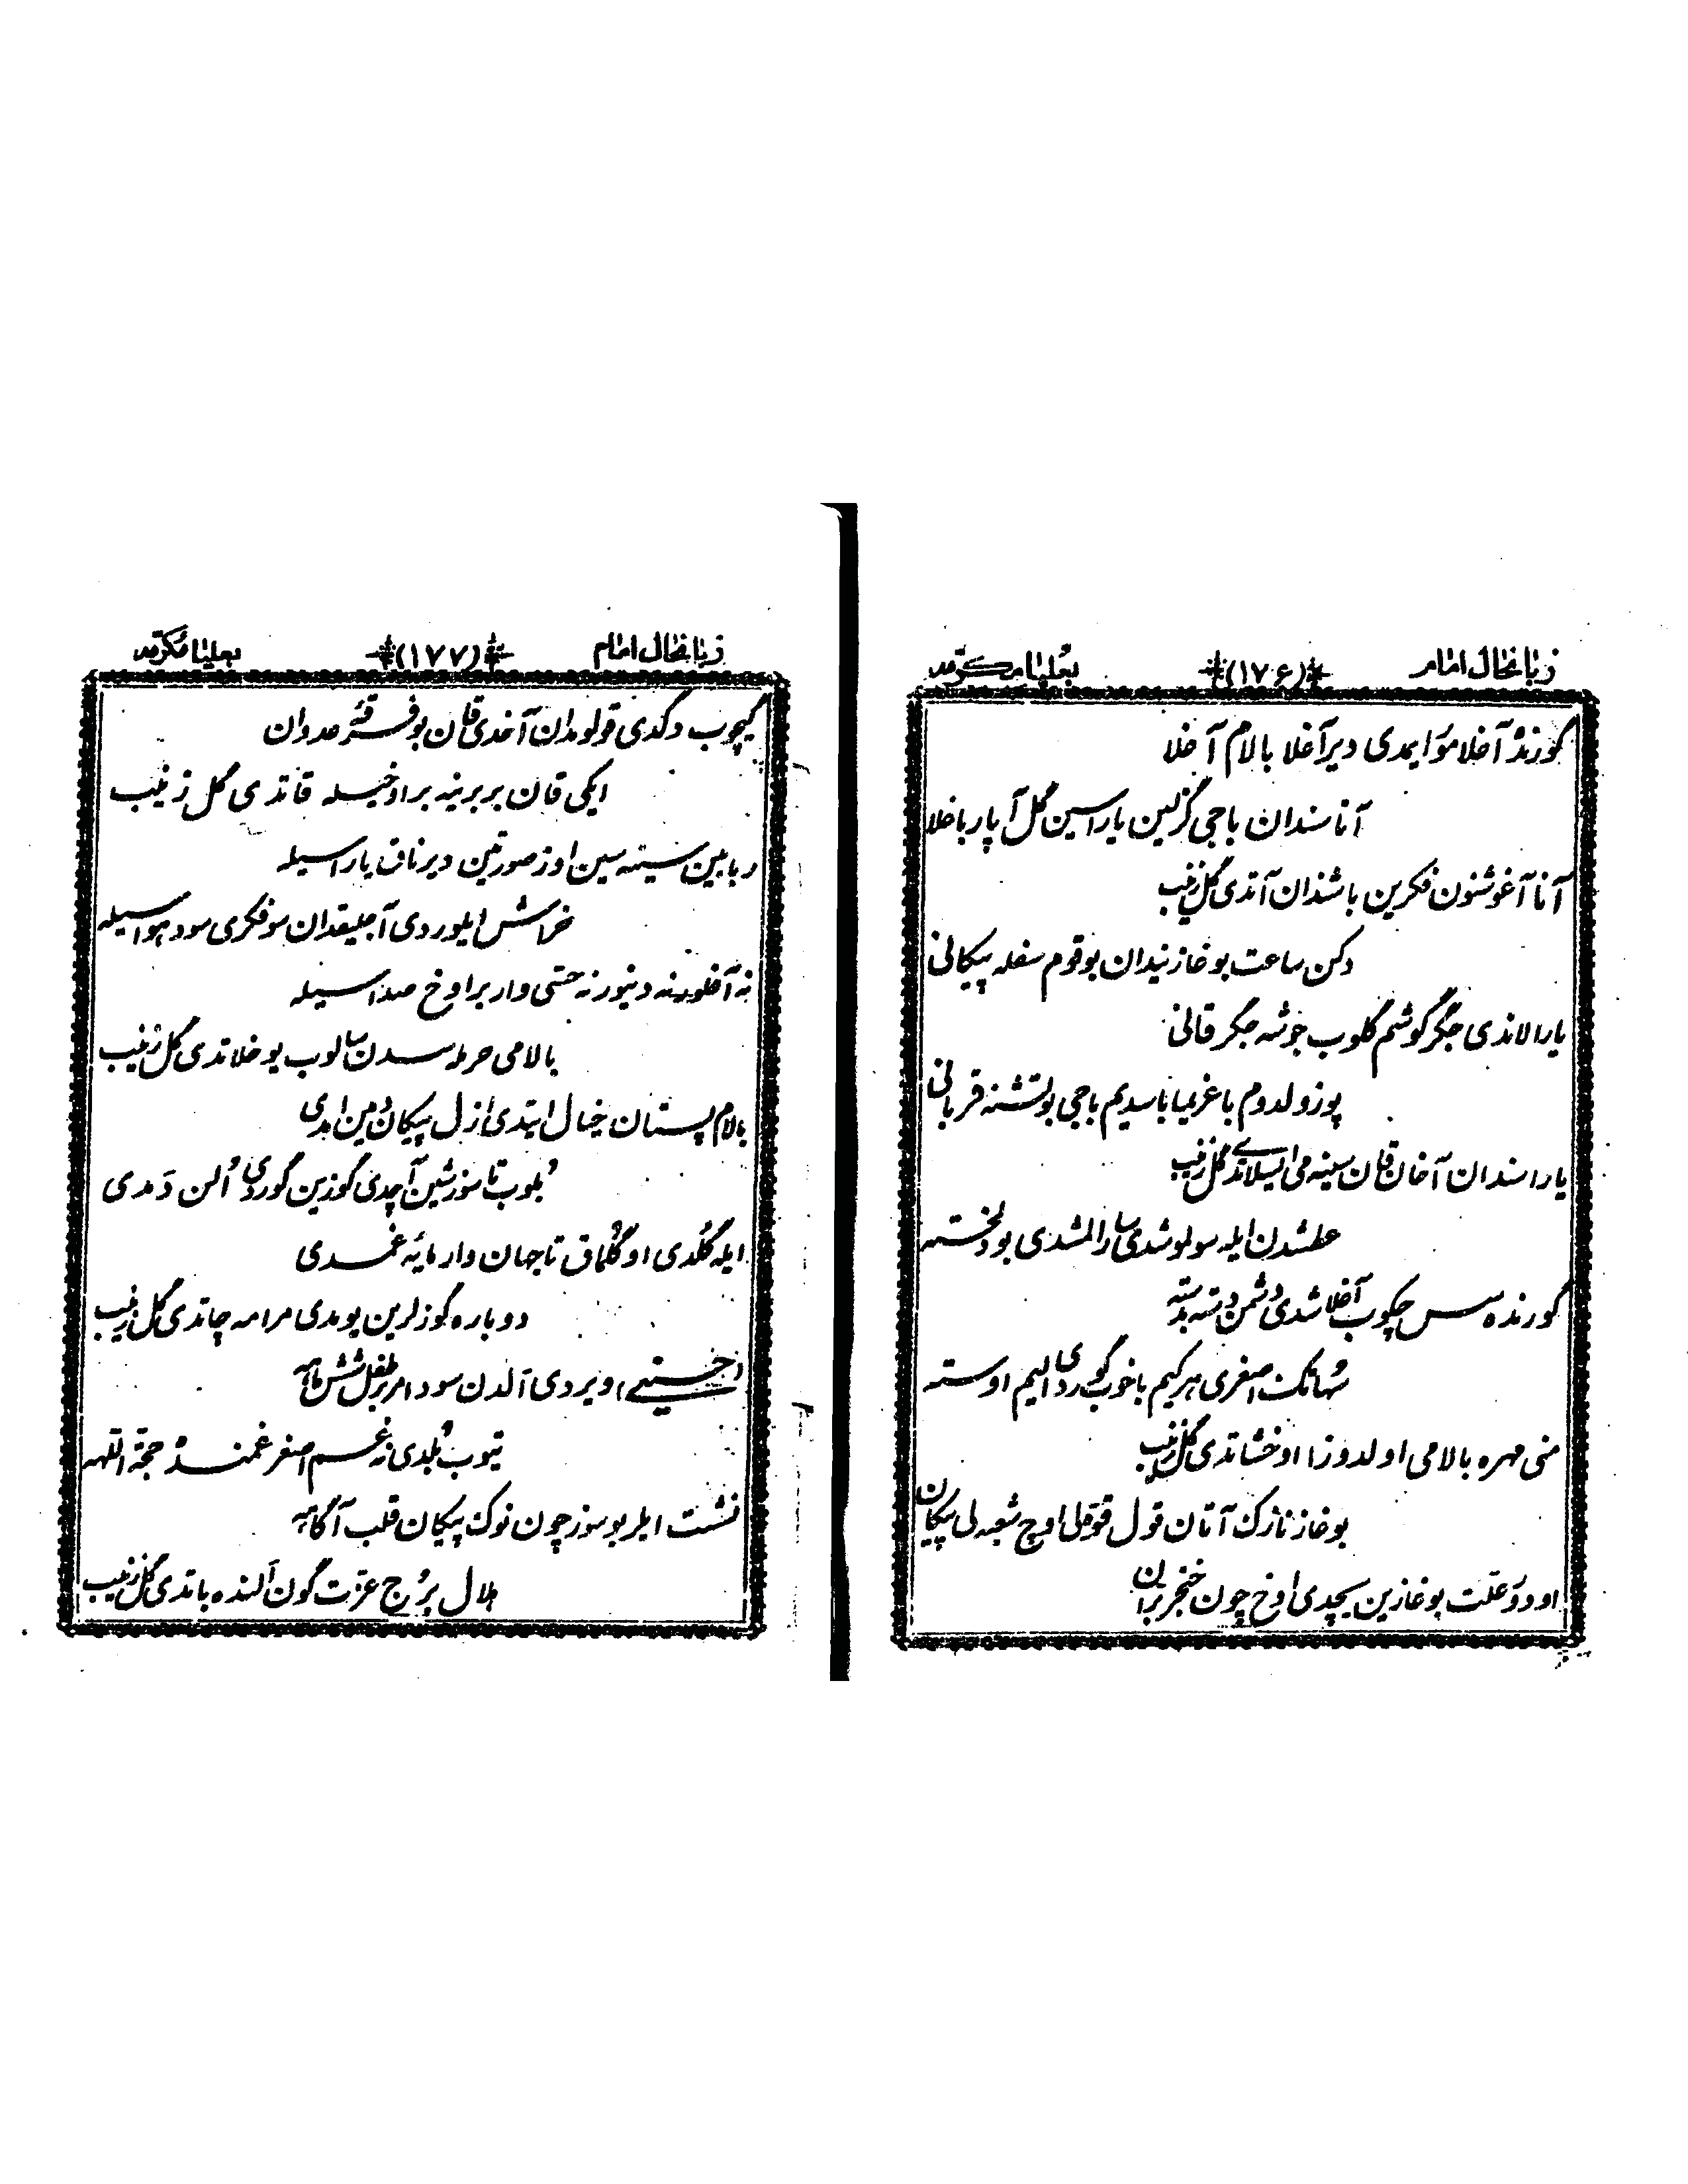 زبانحال امام (۱۷۶) بعلیا مکرمه
کورنده آخلاموا یمدی دیر آغلا بالام آخلا
آنا سندان باجی گزلین یاراسین گل آپار باخلا
آنا آغوشنون فکرین باشندان آتدی گل زینب
دکن ساعت بوغازنیدان بو قوم سفله پیکانی
یارالاندی جگر گوشم گلوب جوشه جگر قانی
یوزولدوم باغریما باسدیم باجی بو تشنه قربانی
یاراسندان آخان قان سینه می ایسلاتدی گل زینب
عطشدن ایله سولموشدی سارالمشدی بو دلخسته
کورنده سس چکوب آغلاشدی دشمن دسته بدسته
نهانک اصغری هر کیم باخوب گوردی الیم اوسته
منی مهره بالامی اولدوزا اوخشاتدی گل زینب
بوغاز نازک آتان قول قوتلی اوچ شعبه لی پیکان
او دور علت بوغازین بیچدی اوخ چون خنجر بران
زبانحال امام (۱۷۷) بعلیا مکرمه
گیچوب دگدی قولومدان آخدی قان بو فرقه عدوان
ایکی قان بربرینه بر اوخیله قاتدی گل زینب
ربابین سینه سین اوز صورتین دیرناق یاراسیله
خراش ایلوردی آجلیقدان سو فکری سود هواسیله
نه آغلور نه دینور نه حسی وار بر اوخ صداسیله
بالامی حرمله سسدن سالوب یوخلاتدی گل زینب
بالام پستان خیال ایتدی ازل پیکان دمین امدی
بلوب تا سوز شین آچدی گوزین گوردی الن دمدی
ایله گلدی او گلماق تا جهان وار مایه غمدی
دوباره گوزلرین یومدی مرامه چاتدی گل زینب
اویردی آلدن سود امر بر طفل شش ماهه
نیوب بلدی نه غم اصغر غمنده حجة اللهه
نشت ایلر بو سوز چون نوک پیکان قلب آگاهه
هلال برج عزت گون النده باتدی گل زینب